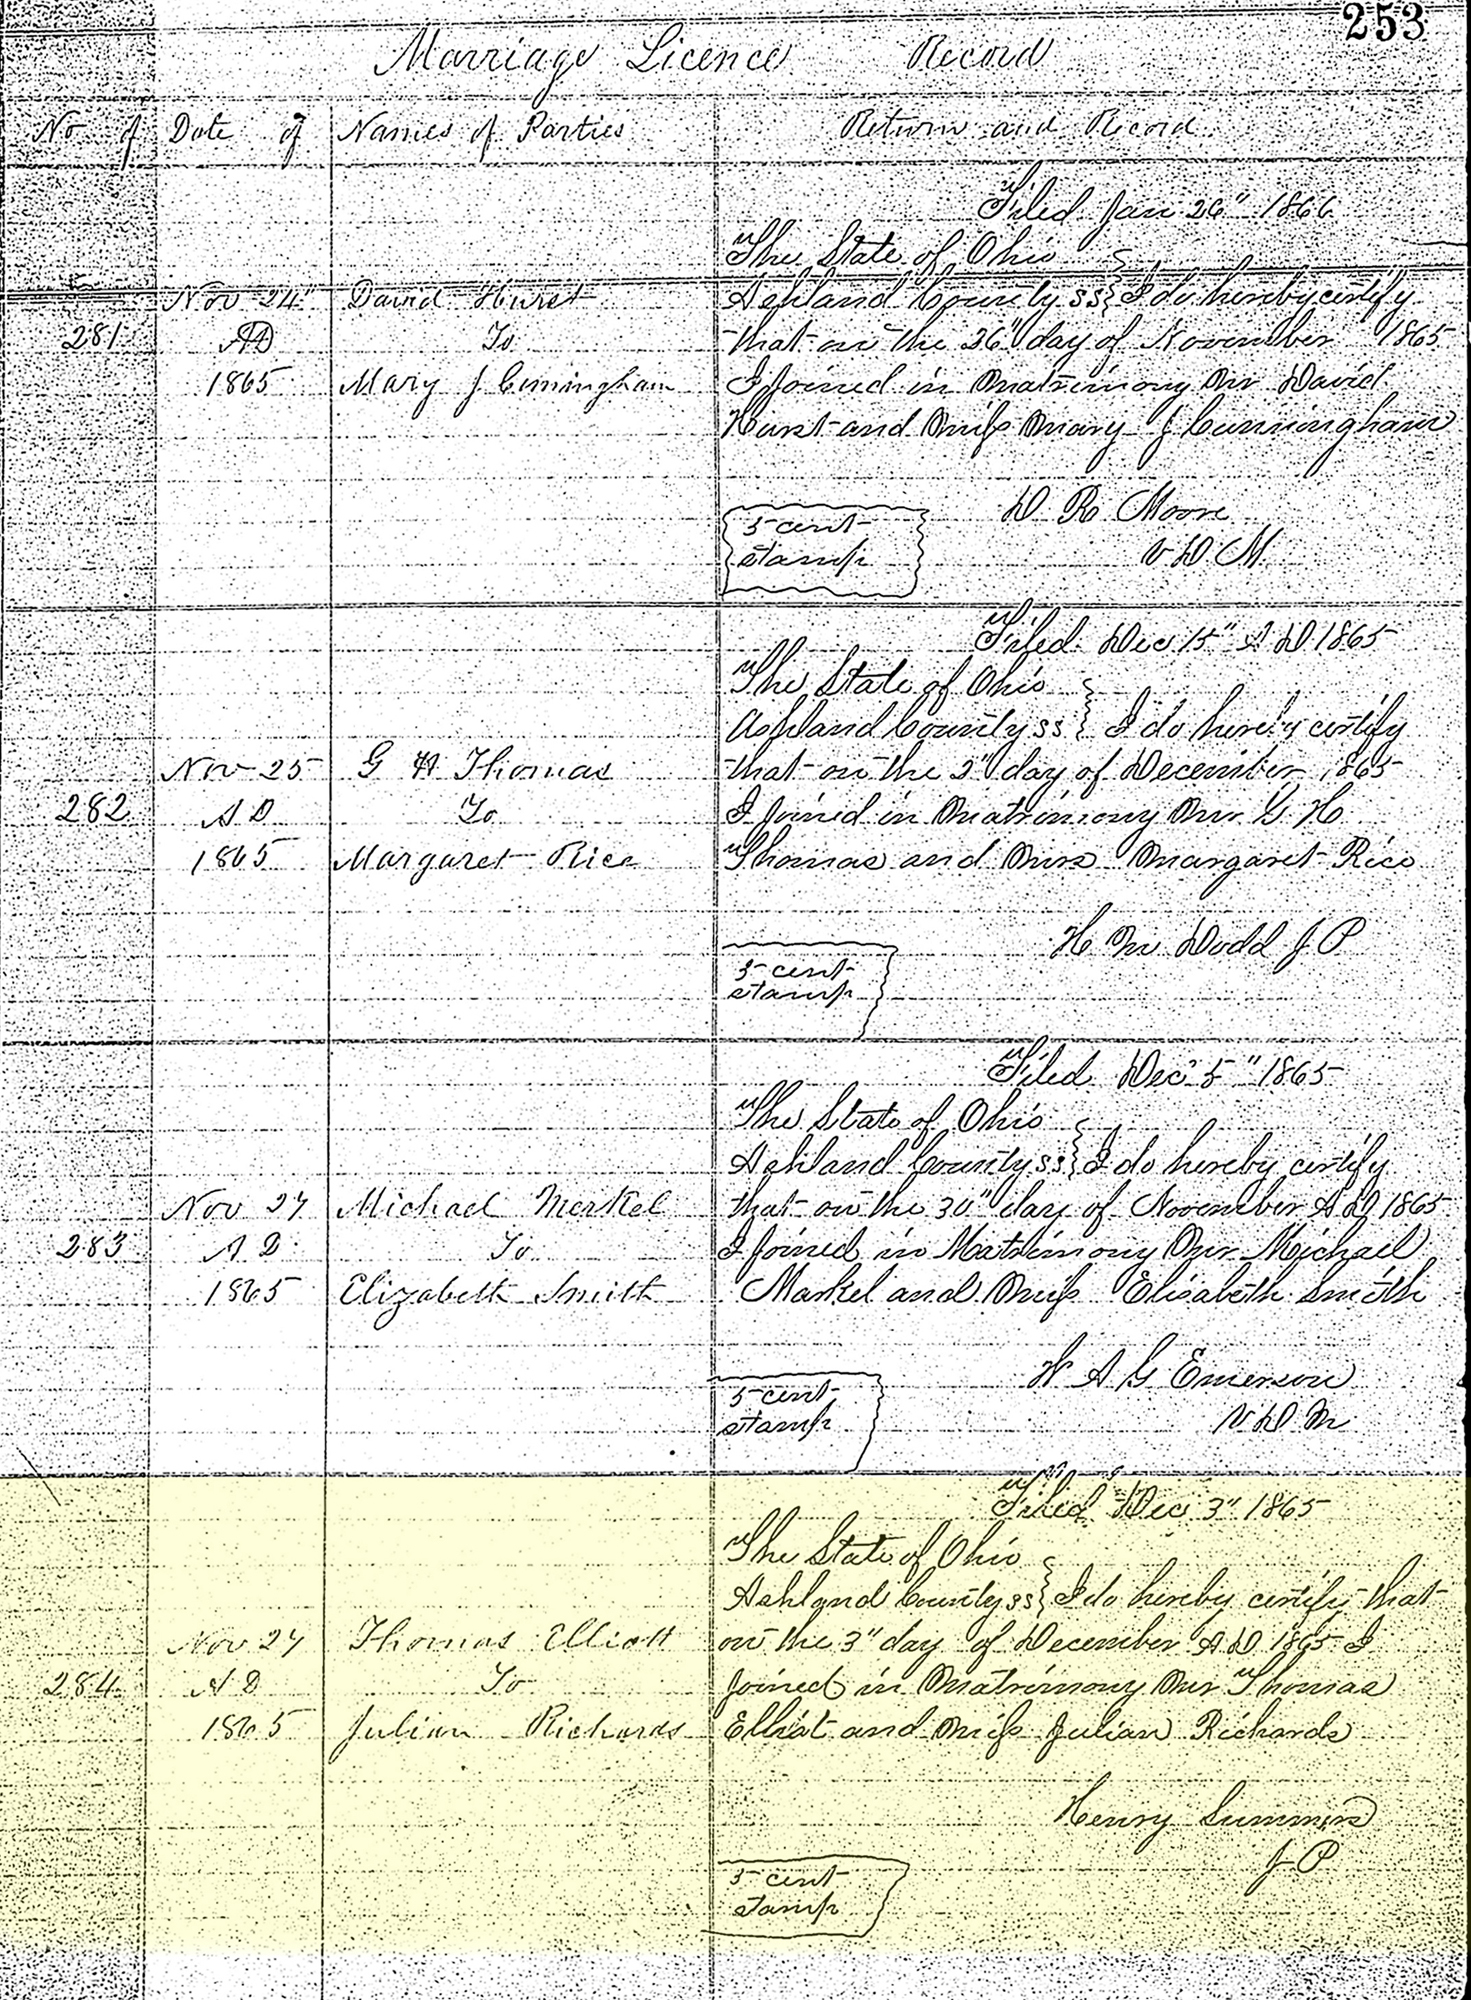 253
Marriage Licence Record
No of Date of Names of Parties Return and Record
Filed Jan 26" 1866
The State of Ohio
Nov 24" David Hurst Ashland County ss} I do hereby certify
281 AD To that on the 26" day of November 1865
1865 Mary J Cuningham I Joined in Matrimony Mr David
Hurst and Miss Mary J Cunningham
D R Moore
5 cent
stamp V D M
Filed Dec 15" A D 1865
The State of Ohio
Ashland County ss } I do hereby certify
Nov 25 G H Thomas that on the 2" day of December 1865
282 A D To I Joined in Matrimony Mr G H
1865 Margaret Rice Thomas and Mrs Margaret Rice
H M Dodd J P
5 cent
stamp
Filed Dec 5" 1865
The State of Ohio
Ashland County ss} I do hereby certify
Nov 27 Michael Merkel that on the 30" day of November A D 1865
283 A D To I Joined in Matrimony Mr Michael
1865 Elizabeth Smith Markel and Miss Elisabeth Smith
W A G Emerson
5 cent
stamp V D M
Filed Dec 3" 1865
The State of Ohio
Ashland County ss} I do hereby certify that
Nov 27 Thomas Elliott on the 3" day of December A D 1865 I
284 A D To Joined in Matrimony Mr Thomas
1865 Julian Richards Elliot and Miss Julian Richards
Henry Summers
J P
5 cent
stamp